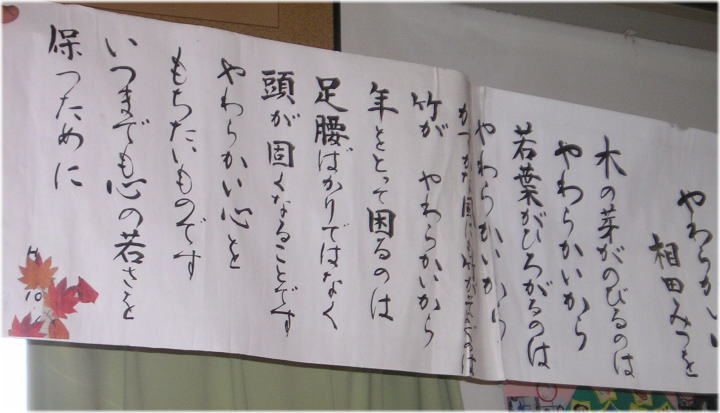 やわらかい
相田みつを
木の芽がのびるのは
やわらかいから
若葉がひろがるのは
やわらかいから
かすかな風にも竹が のは
竹が やわらかいから
年をとって困るのは
足腰ばかりではなく
頭が固くなることです
やわらかい心を
もちたいものです
いつまでも心の若さを
保つために
10